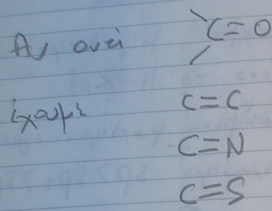 Αν αντί C=O
έχουμε C=C
C=N
C=S